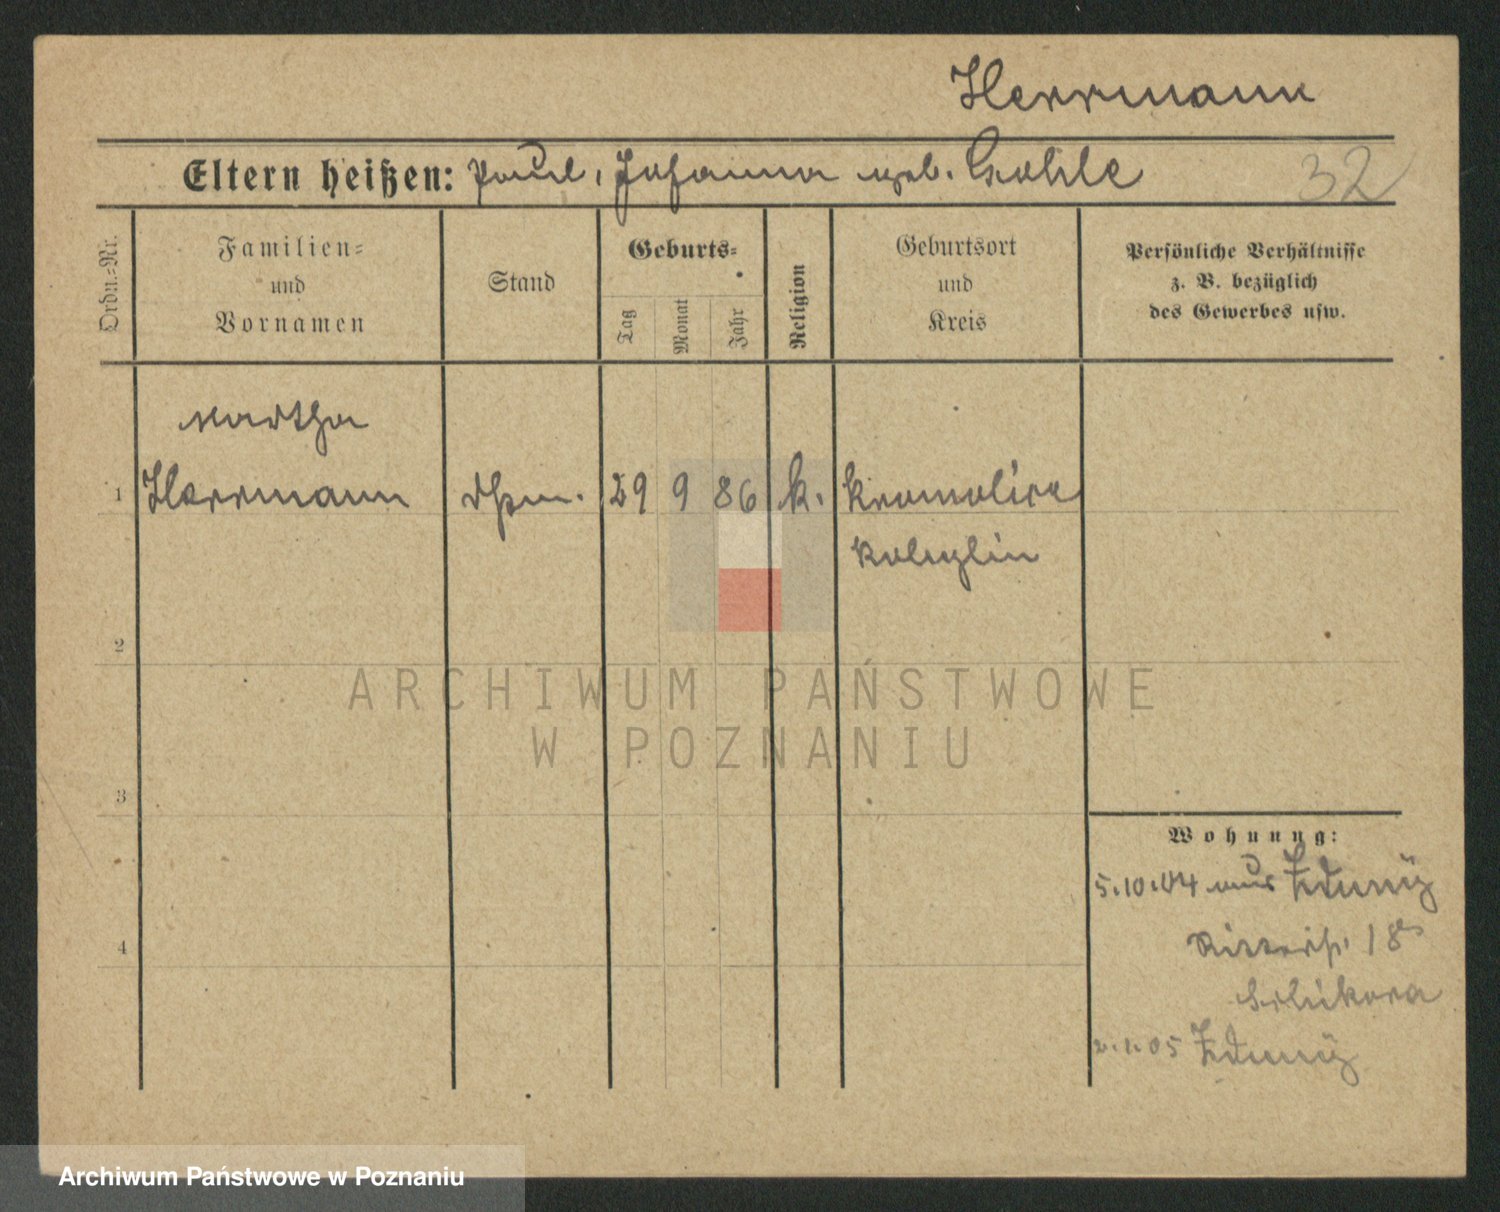 Herrmann
Eltern heißen: Paul, Johanna geb. Gohle
32
Ordn.=Nr.
Familien=
und
Vornamen
Stand
Geburts=
Tag
Monat
Jahr
Religion
Geburtsort
und
Kreis
Persönliche Verhältnisse
z. B. bezüglich
des Gewerbes usw.
Martha
1 Herrmann 29 9 86 k. Kromolice
Koschmin
2
ARCHIWUM PAŃSTWOWE
W POZNANIU
3
Wohnung:
5.10.04 aus Zduny
Ritterstr. 18
4
05 Zduny
Archiwum Państwowe w Poznaniu